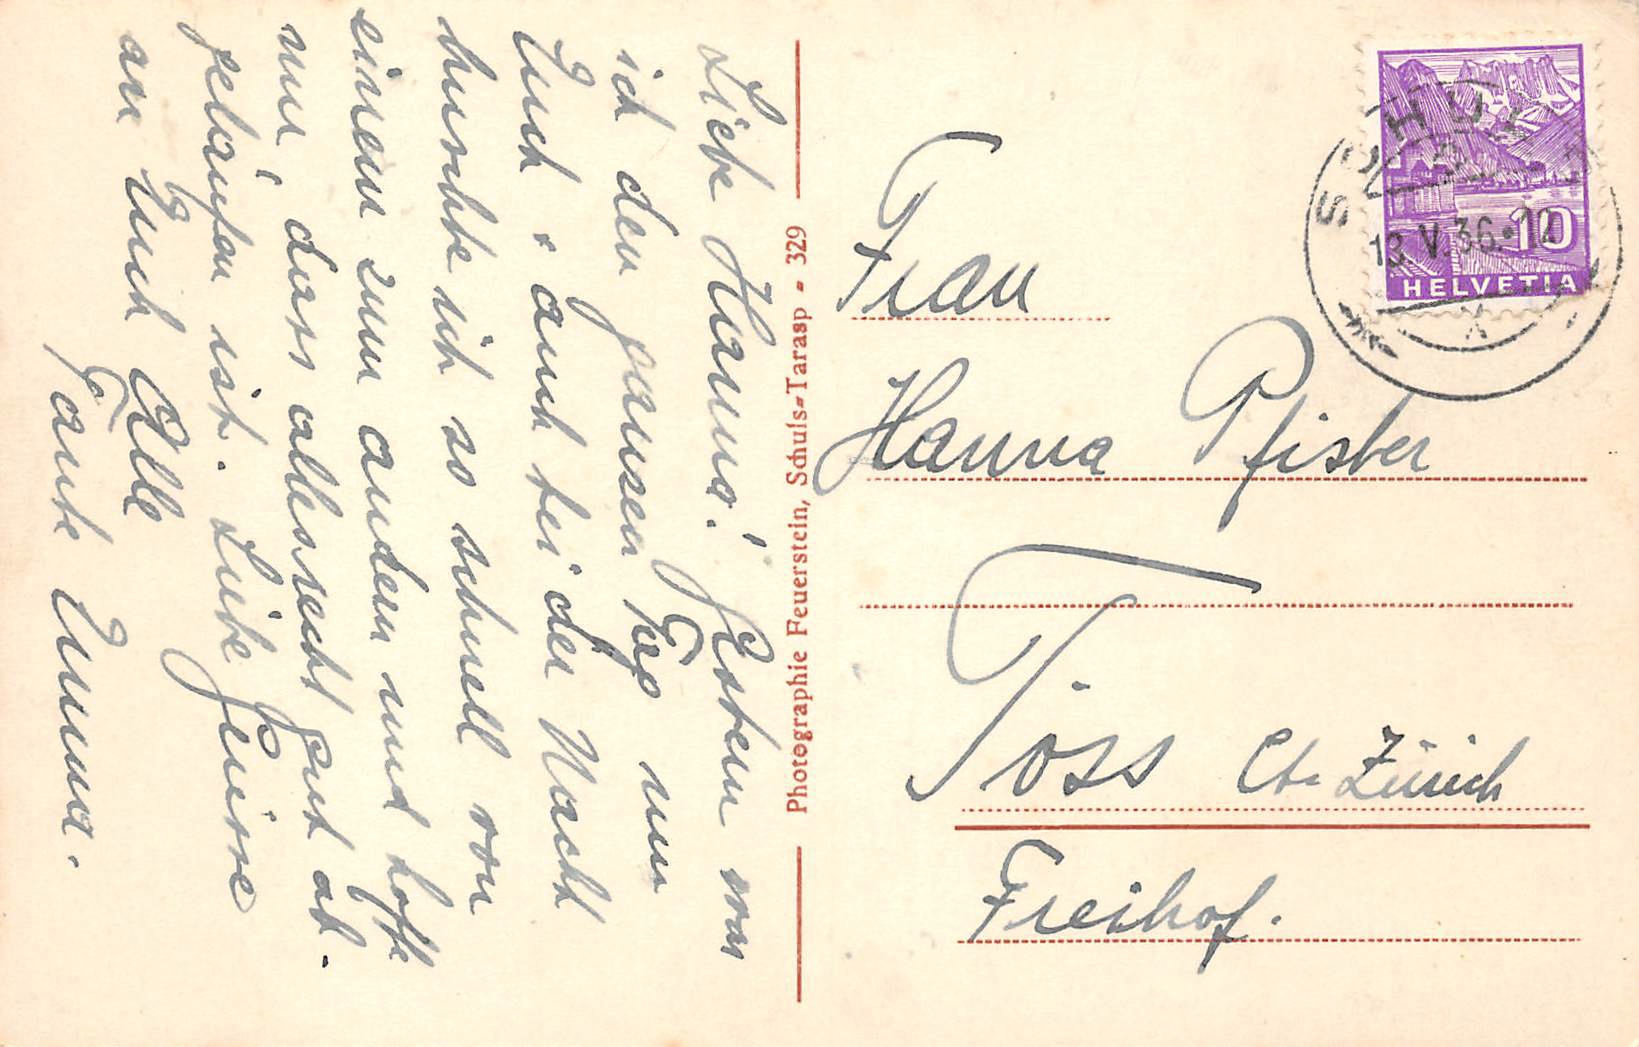 Liebe Hanna! Gestern war
ich den ganzen Tag um
Euch & auch bei der Nacht
ich so schnell von
einem zum andern und hoffe
nur dass alles recht gut
gelaufen ist. Liebe Grüsse
an Euch Alle
Tante Emma.
Photographie Feuerstein, Schuls-Tarasp - 329
Frau
Hanna Pfister
Töss Ct. Zürich
Freihof.
SCHULS
13.V.36.12
10
HELVETIA